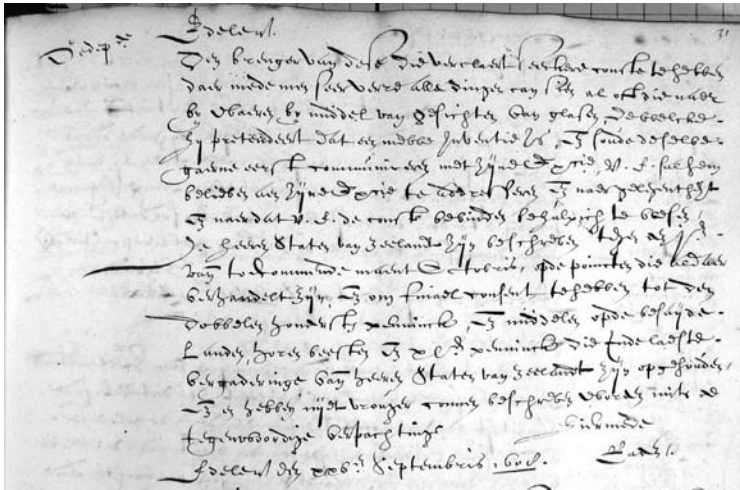 31
Edelen etc.
Den brenger van dese die verclaert seeckere conste te hebben
daer mede men seer verre alle dingen can sien al oft die naer
by waeren by middel van gesichten van glasen, dewelcke
hy pretendeert dat een nieuwe inventie is, en soude deselve
gaerne eerst communiceren met zijne Extie, U.E. sal hem
believen aen zijne Extie te addresseren en naer gelegentheyt
en naer dat U.E. de conste bevinden behulpich te wesen,
De heeren Staten van Zeelandt zijn beschreven tegen den
van toecommende maent Octobris, opde poincten die aldaer
verhandelt zijn, en om finael consent te hebben tot den
dobbelen hondersten penninck, en middelen opde besayde
Landen, horen beesten en xl en penninck die inde laetste
vergaderinge van heeren Staten van Zeelandt zijn opgehouden,
en en hebben niet vrouger connen beschreven worden mits de
tegenwoordige verpachtinge hiermede
Edelen etc. den xxv en Septembris 1608.